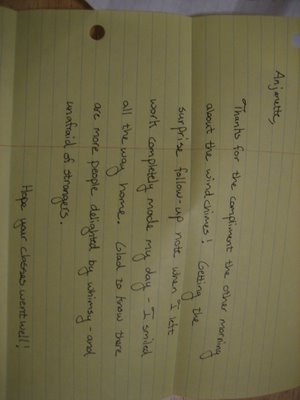 Anjanette,
Thanks for the compliment the other morning
about the windchimes! Getting the
surprise follow-up note when I left
work completely made my day - I smiled
all the way home. Glad to know there
are more people delighted by whimsy - and
unafraid of strangers.
Hope your classes went well!